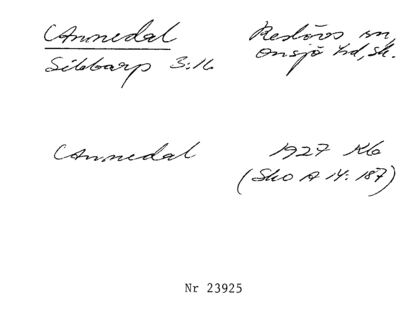 Annedal Reslövs sn,
Sibbarp 3:16 Onsjö hd, sk.
Annedal 1927 Kb
(Sko A 14:187)
Nr 23925